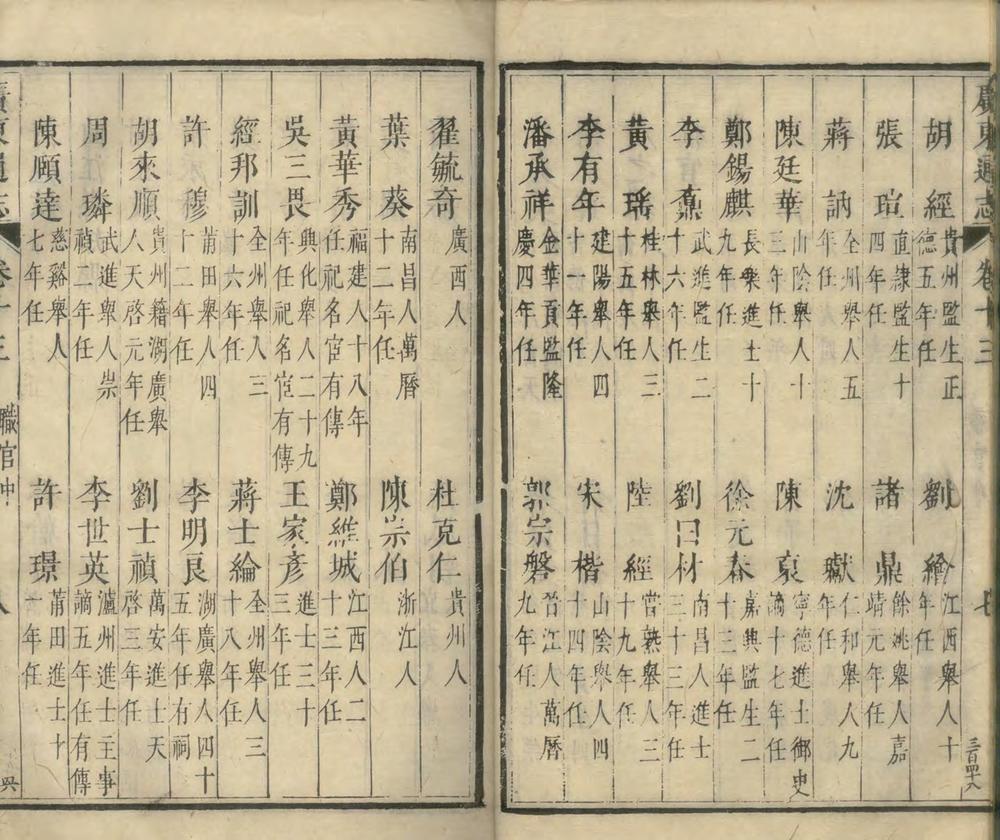 廣東通志 卷十三 七
胡經 貴州監生正德五年任 劉繪 江西舉人十年任
張瑄 直隸監生十四年任 諸鼎 餘姚舉人嘉靖元年任
蔣訥 全州舉人五年任 沈獻 仁和舉人九年任
陳廷華 山陰舉人十三年任 陳裒 寧德進士御史謫十七年任
鄭錫麒 長樂進士十九年任 徐元春 嘉興監生二十三年任
李鼐 武進監生二十六年任 劉曰材 南昌人進士三十三年任
黃瑤 桂林舉人三十五年任 陸經 常熟舉人三十九年任
李有年 建陽舉人四十一年任 宋楷 山陰舉人四十四年任
潘承祥 金華貢監隆慶四年任 郭宗磐 晉江人萬曆九年任
翟毓奇 廣西人 杜克仁 貴州人
葉葵 南昌人萬曆十二年任 陳崇伯 浙江人
黃華秀 福建人十八年任祀名宦有傳 鄭維城 江西人二十三年任
吳三畏 興化舉人二十九年任祀名宦有傳 王家彥 進士三十三年任
經邦訓 全州舉人三十六年任 蔣士綸 全州舉人三十八年任
許穆 莆田舉人四十二年任 李明良 湖廣舉人四十五年任有祠
胡來順 貴州籍湖廣舉人天啓元年任 劉士禎 萬安進士天啓三年任
周璘 武進舉人崇禎二年任 李世英 瀘州進士主事謫五年任有傳
陳願達 慈谿舉人七年任 許璟 莆田進士十一年任
廣東通志 卷十三 職官中 八